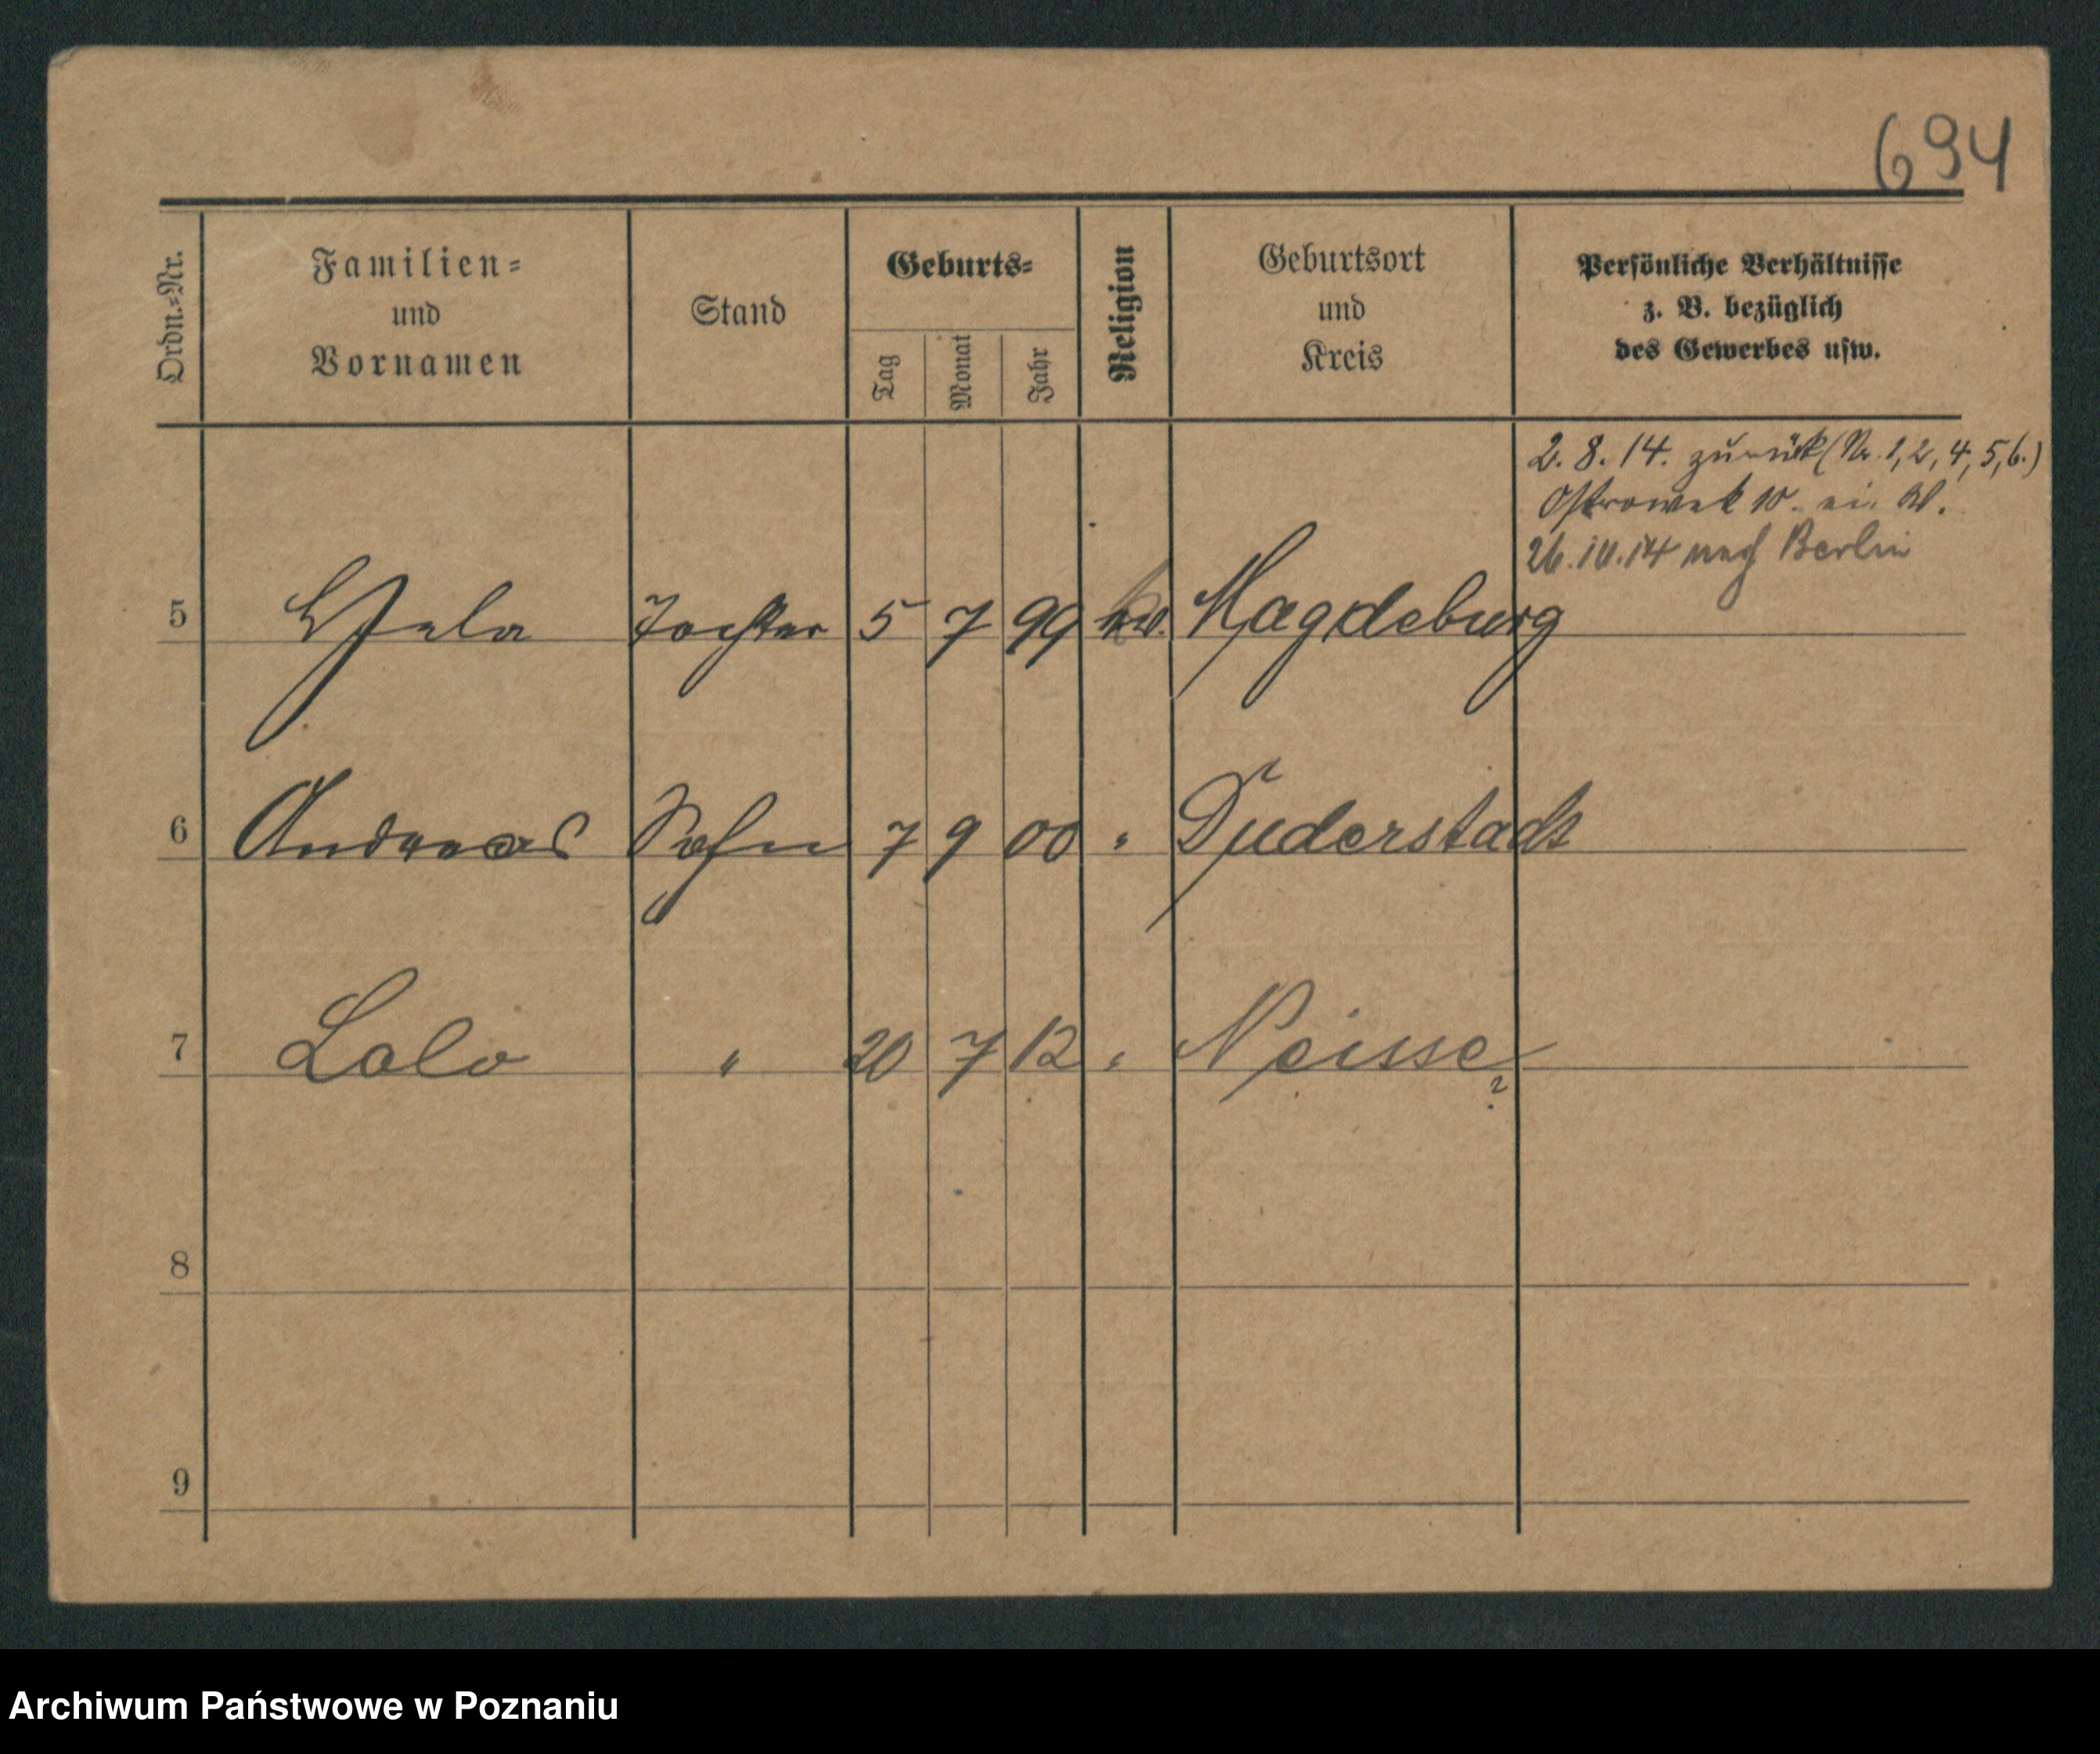 694
Ordn.-Nr.
Familien-
und
Vornamen
Stand
Geburts-
Tag
Monat
Jahr
Religion
Geburtsort
und
Kreis
Persönliche Verhältnisse
z. B. bezüglich
des Gewerbes usw.
2.8.14. zurück (Nr. 1, 2, 4, 5, 6.)
Ostrowek 10
26.10.14 nach Berlin
5 Tochter 5 7 99 Magdeburg
6 Andreas Sohn 7 9 00 " Duderstadt
7 Lolo " 20 7 12 " Neisse ?
8
9
Archiwum Państwowe w Poznaniu